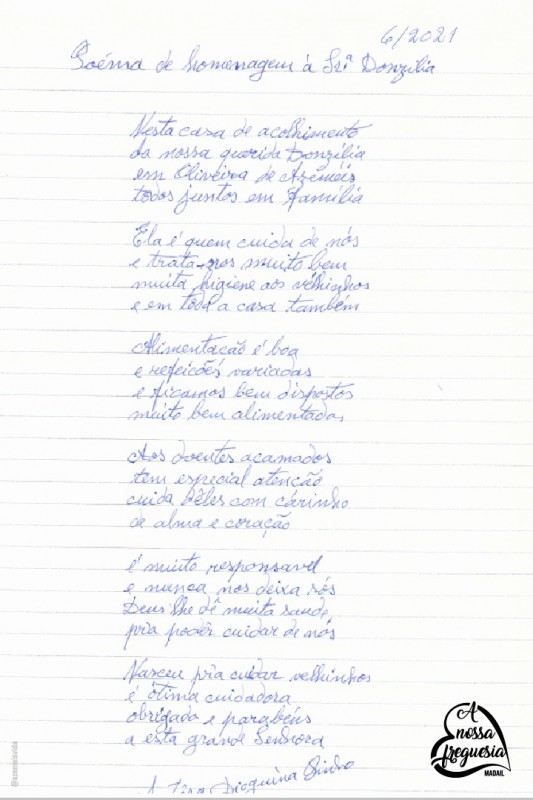 6/2021
Poéma de homenagem à Srª Donzília
Nesta casa de acolhimento
da nossa querida Donzília
em Oliveira de Azeméis
todos juntos em Família
Ela é quem cuida de nós
e trata-nos muito bem
muita higiene aos vélhinhos
e em toda a casa também
Alimentacão é boa
e refeicões variadas
e ficamos bem dispostos
muito bem alimentadas
Aos doentes acamados
tem especial atenção
cuida dêles com cárinho
de alma e coração
é muito responsavel
e nunca nos deixa sós
Deus lhe dê muita saude
pra podêr cuidar de nós
Nasceu pra cuidar velhinhos
é ótima cuidadora
obrigada e parabéns
a esta grande Senhora
A
nossa
freguesia
MADAIL
@azemeisvida